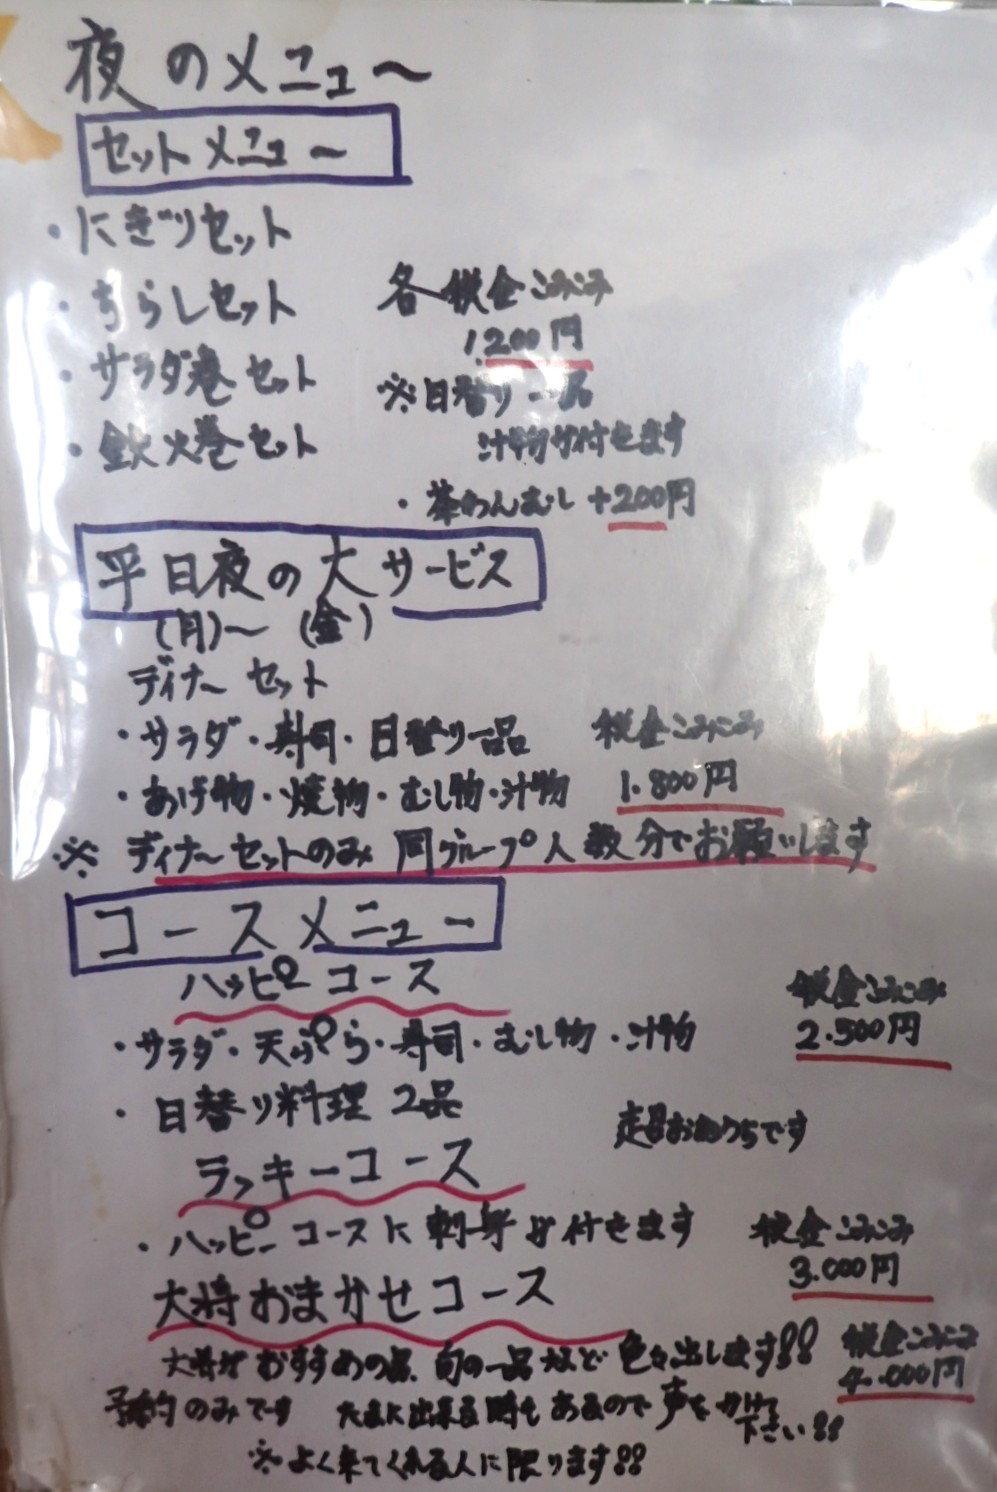 夜のメニュ〜
セットメニュ〜
・にぎりセット
・ちらしセット
各税金こみこみ
1.200円
・サラダ巻セット
※日替り一品
・鉄火巻セット
汁物が付きます
・茶わんむし +200円
平日夜の大サービス
(月)〜(金)
ディナーセット
・サラダ・寿司・日替り一品
税金こみこみ
・あげ物・焼物・むし物・汁物
1.800円
※ディナーセットのみ同グループ人数分でお願いします
コースメニュー
ハッピーコース
税金こみこみ
2.500円
・サラダ・天ぷら・寿司・むし物・汁物
・日替り料理 2品
走召おねうちです
ラッキーコース
・ハッピーコースに刺身が付きます
税金こみこみ
3.000円
大将おまかせコース
大将がおすすめの品、旬の一品など色々出します!!
税金こみこみ
4.000円
予約のみです たまに出来る時もあるので声をかけて
下さい!!
※よく来てくれる人に限ります!!